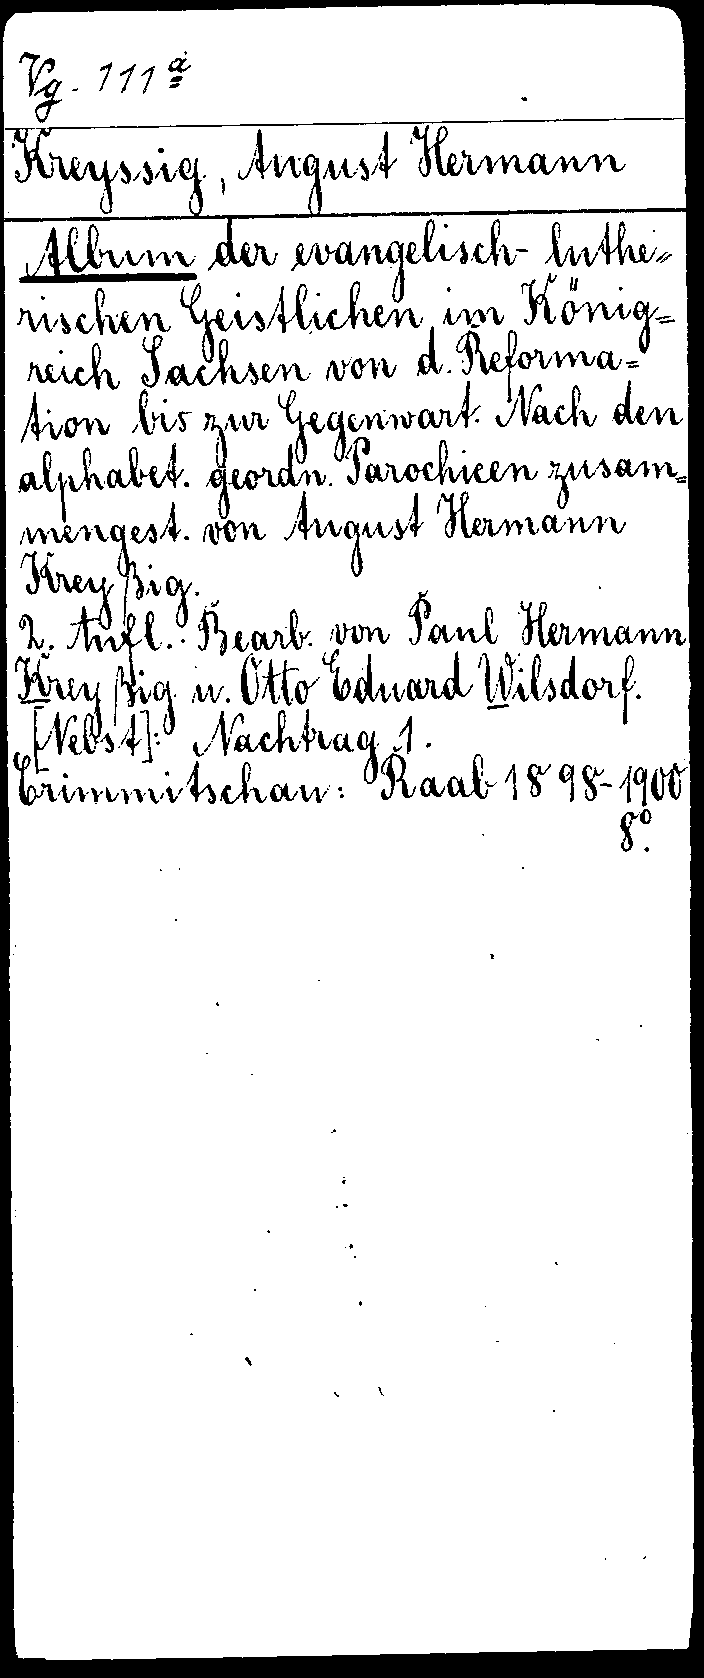 Vg. 111ª
Kreyssig, August Hermann
Album der evangelisch-luthe-
rischen Geistlichen im König-
reich Sachsen von d. Reforma-
tion bis zur Gegenwart. Nach den
alphabet. geordn. Parochieen zusam-
mengest. von August Hermann
Kreyßig.
2. Aufl.: Bearb. von Paul Hermann
Kreyßig u. Otto Eduard Wilsdorf.
[Nebst]: Nachtrag 1.
Crimmitschau: Raab 1898-1900
8°.